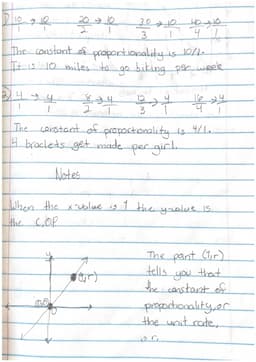 1) 10/1 → 10/1 20/2 → 10/1 30/3 → 10/1 40/4 → 10/1
The constant of proportionality is 10/1.
It is 10 miles to go biking per week
2) 4/1 → 4/1 8/2 → 4/1 12/3 → 4/1 16/4 → 4/1
The constant of proportionality is 4/1.
4 braclets get made per girl.
Notes
When the x-value is 1 the y-value is
the C.O.P
y
(1,r)
x
The point (1,r)
tells you that
the constant of
proportionality, or
the unit rate,
is r.